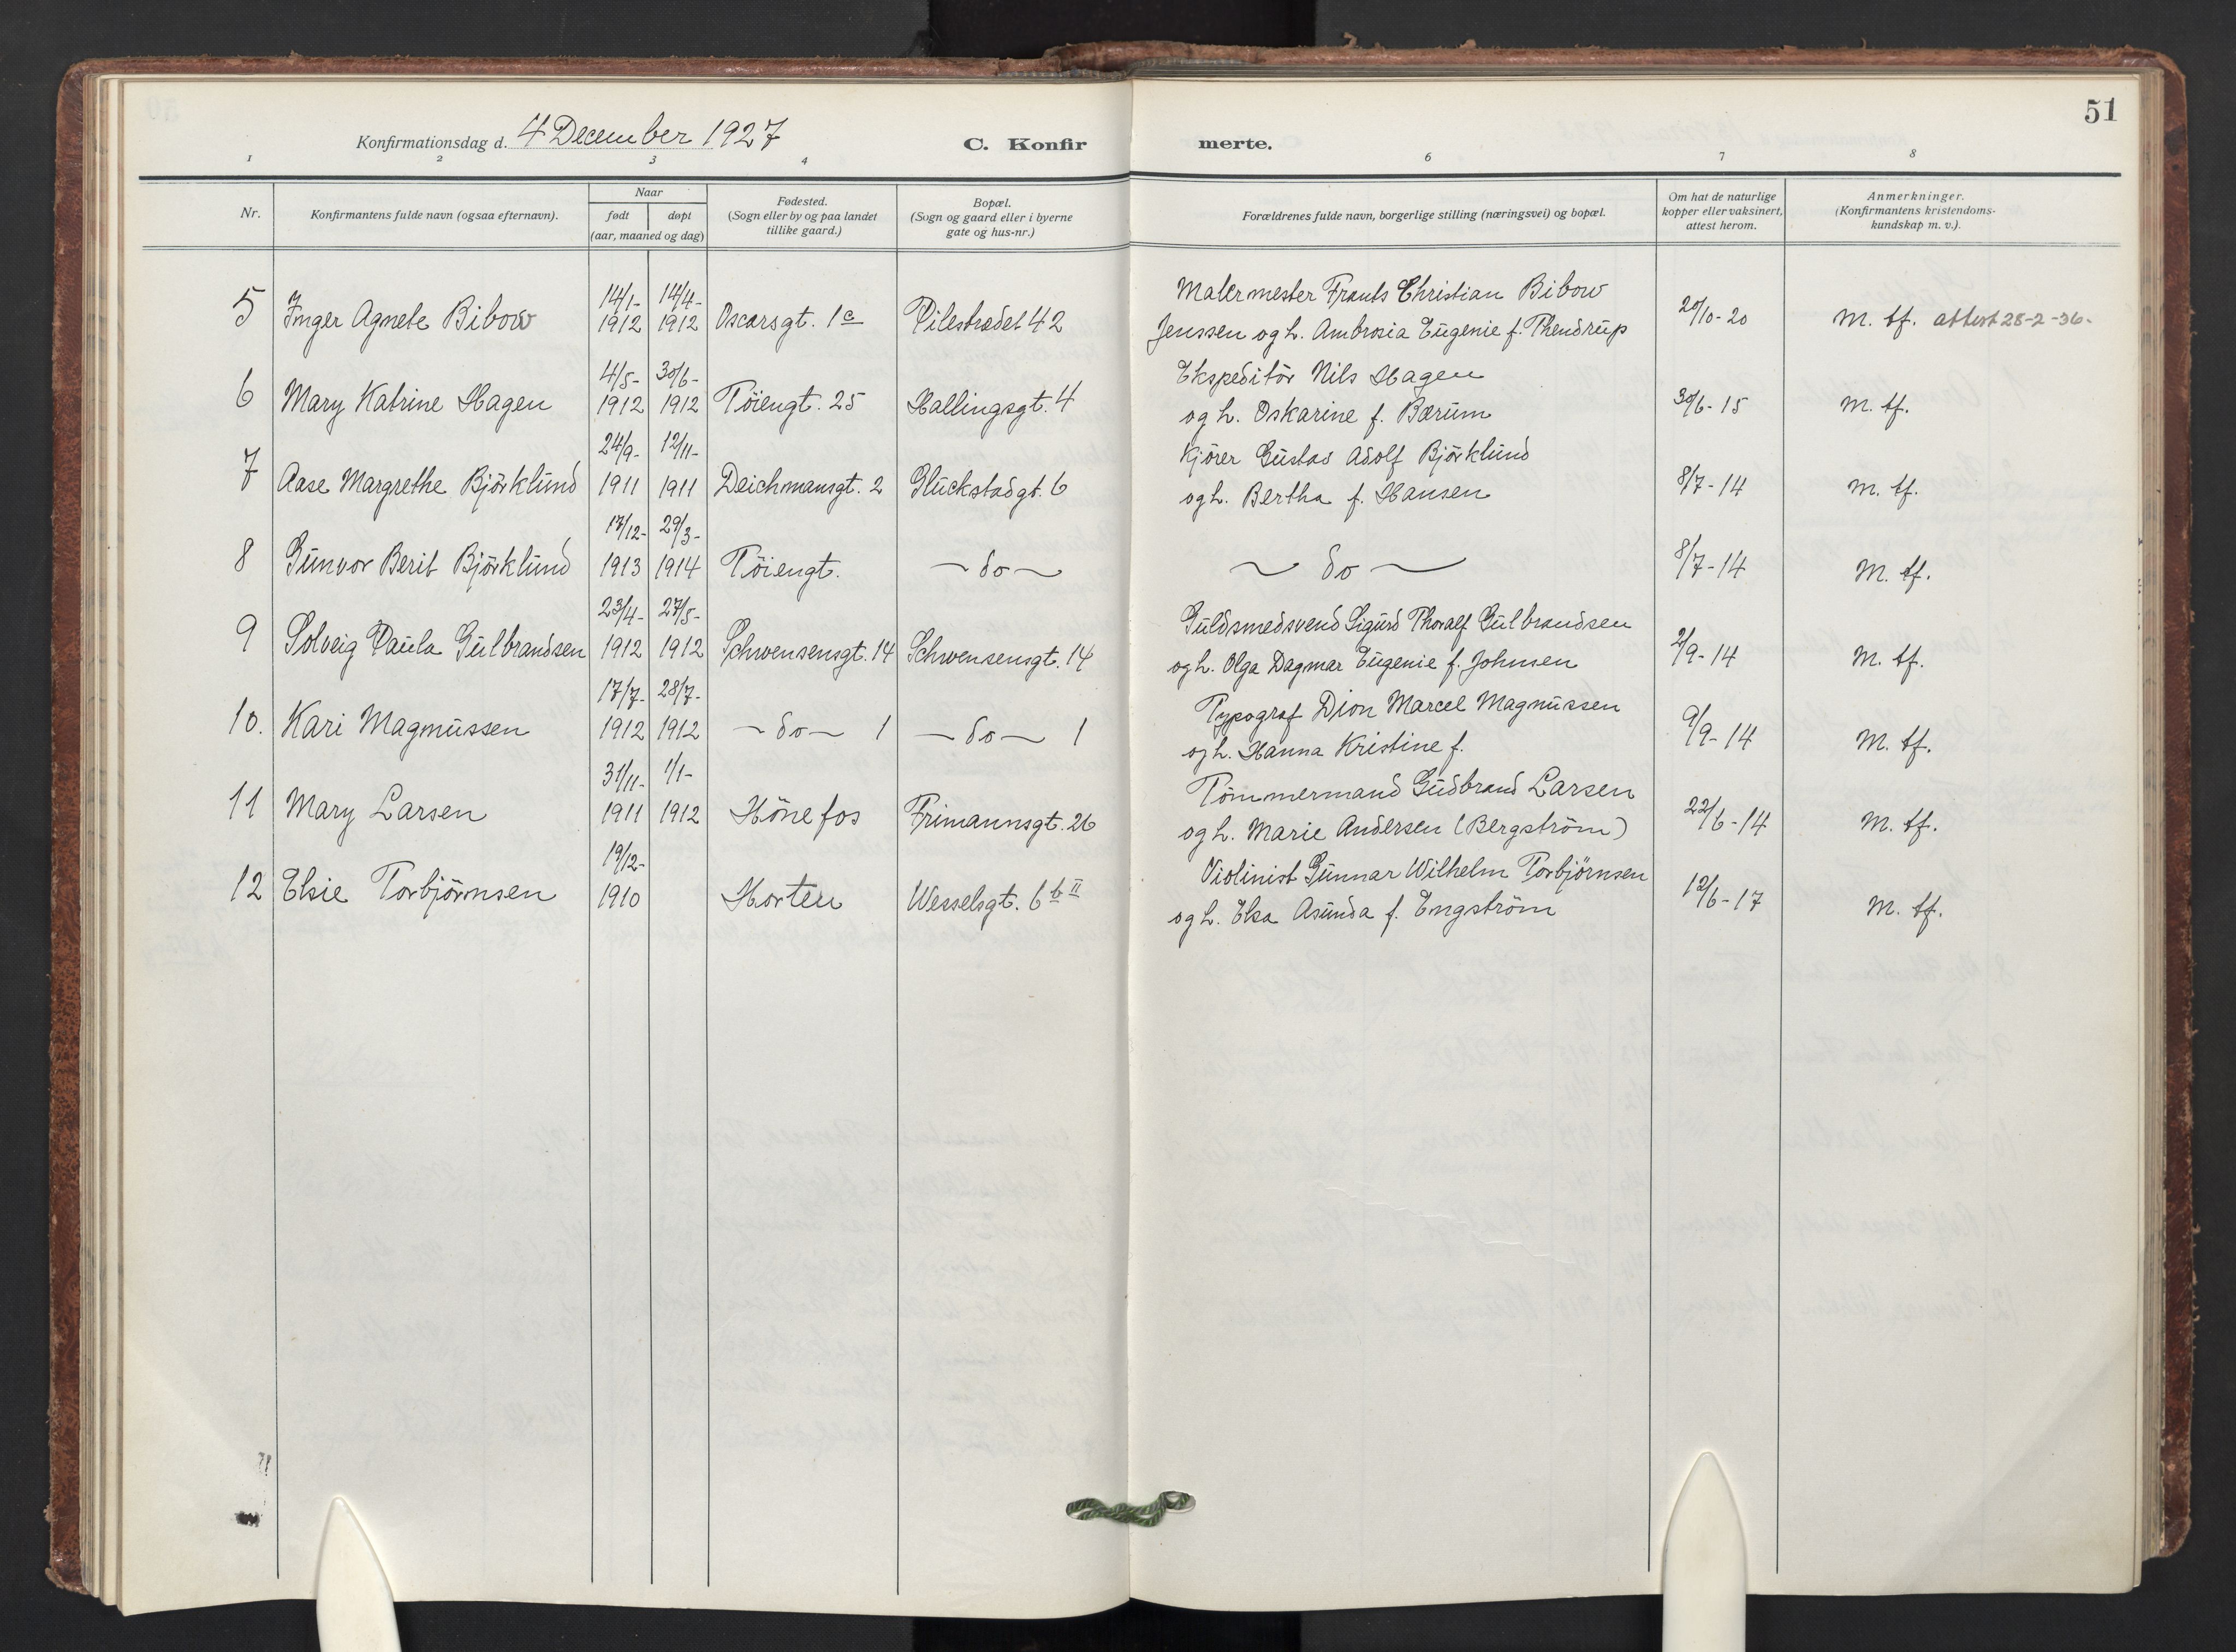 51
Konfirmationsdag d. 4 December 1927
C. Konfirmerte.
1 2 3 4 6 7 8
Nr.
Konfirmantens fulde navn (ogsaa efternavn).
Naar
født døpt
(aar, maaned og dag)
Fødested.
(Sogn eller by og paa landet
tillike gaard.)
Bopæl.
(Sogn og gaard eller i byerne
gate og hus-nr.)
Forældrenes fulde navn, borgerlige stilling (næringsvei) og bopæl.
Om hat de naturlige
kopper eller vaksinert,
attest herom.
Anmerkninger.
(Konfirmantens kristendoms-
kundskap m. v.).
5 Inger Agnete Bibow 14/1- 1912 14/4- 1912 Oscarsgt. 1c Pilestrædet 42
Malermester Frants Christian Bibow
Jenssen og h. Ambrosia Eugenie f. Thendrup
20/10-20 M. tf. attest 28-2-36.
6 Mary Katrine Hagen 4/5- 1912 30/6- 1912 Töiengt. 25 Hallingsgt. 4
Ekspeditör Nils Hagen
og h. Oskarine f. Bærum
30/6-15 M. tf.
7 Aase Margrethe Björklund 24/9- 1911 12/11- 1911 Deichmansgt. 2 Glückstadgt. 6
Kjörer Gustav Adolf Björklund
og h. Bertha f. Hansen
8/7-14 M. tf.
8 Gunvor Berit Björklund 17/12- 1913 29/3- 1914 Töiengt. ~ do ~
~ do ~
8/7-14 M. tf.
9 Solveig Paula Gulbrandsen 23/4- 1912 27/5- 1912 Schwensensgt. 14 Schwensensgt. 14
Guldsmedsvend Sigurd Thoralf Gulbrandsen
og h. Olga Dagmar Eugenie f. Johnsen
2/9-14 M. tf.
10. Kari Magnussen 17/7- 1912 28/7- 1912 ~ do ~ 1 ~ do ~ 1
Typograf Dion Marcel Magnussen
og h. Hanna Kristine f.
9/9-14 M. tf.
11 Mary Larsen 31/11- 1911 1/1- 1912 Hönefos Frimannsgt. 26
Tömmermand Gudbrand Larsen
og h. Marie Andersen (Bergström)
22/6-14 M. tf.
12 Elsie Torbjörnsen 19/12- 1910 Horten Wesselsgt. 6 b II
Violinist Gunnar Wilhelm Torbjörnsen
og h. Elsa Asunda f. Engström
12/6-17 M. tf.